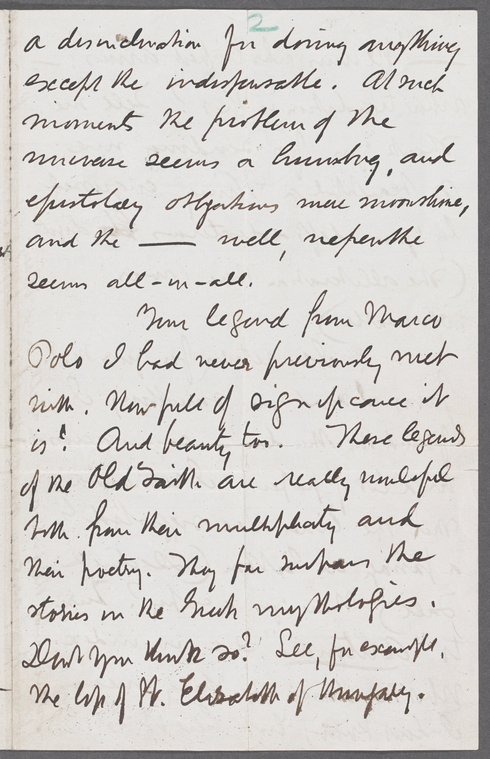 2
a disinclination for doing anything
except the indispensable. At such
moments the problem of the
universe seems a humbug, and
epistolary obligations mere moonshine,
and the — well, nepenthe
seems all-in-all.
Your legend from Marco
Polo I had never previously met
with. How full of significance it
is! And beauty too. These legends
of the Old Faith are really wonderful
both from their multiplicity and
their poetry. They far surpass the
stories in the Greek mythologies.
Don't you think so? See, for example,
the life of St. Elizabeth of Hungary.